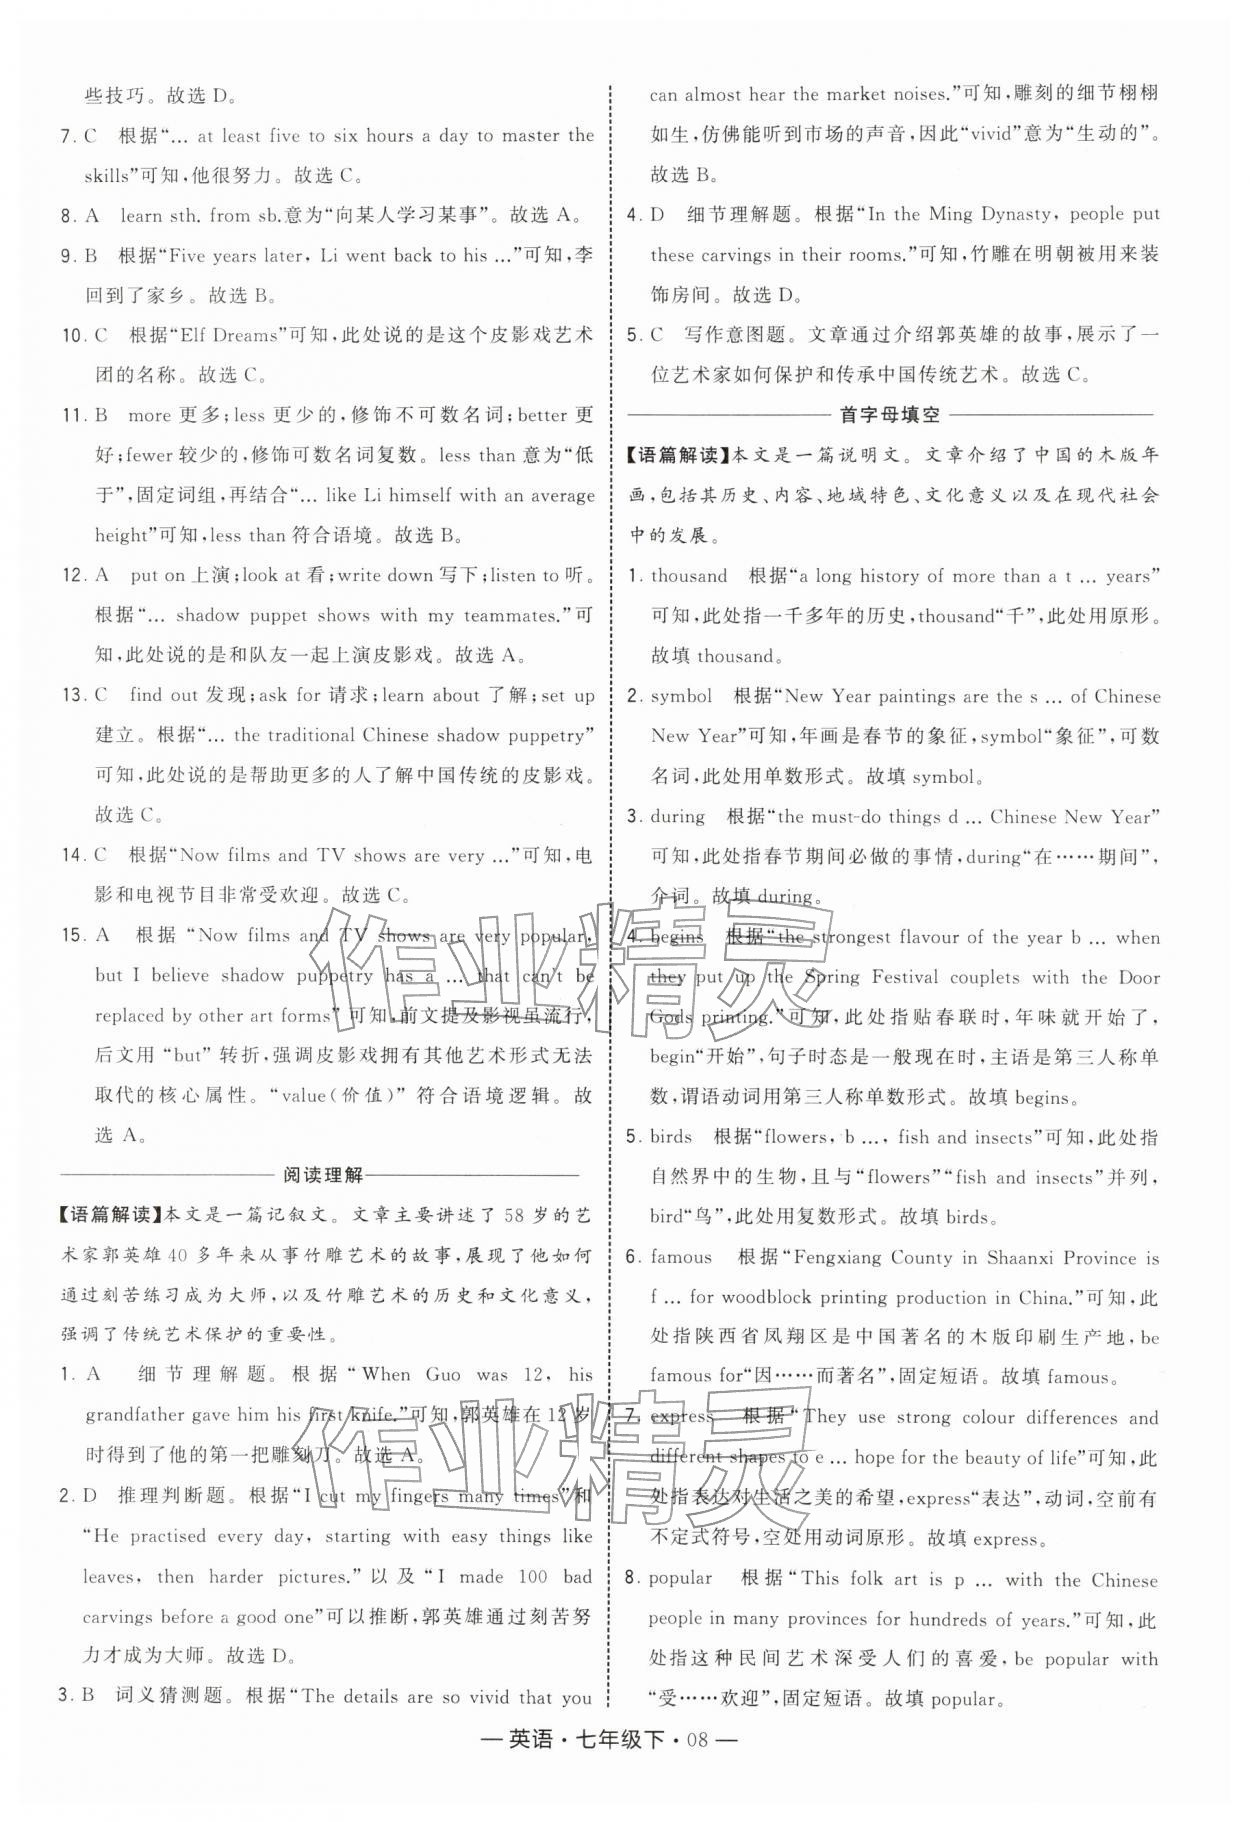 些技巧。故选 D。
7. C 根据“… at least five to six hours a day to master the
skills”可知,他很努力。故选 C。
8. A learn sth. from sb.意为“向某人学习某事”。故选 A。
9. B 根据“Five years later, Li went back to his …”可知,李
回到了家乡。故选 B。
10. C 根据“Elf Dreams”可知,此处说的是这个皮影戏艺术
团的名称。故选 C。
11. B more 更多;less 更少的,修饰不可数名词;better 更
好;fewer 较少的,修饰可数名词复数。less than 意为“低
于”,固定词组,再结合“… like Li himself with an average
height”可知,less than 符合语境。故选 B。
12. A put on 上演;look at 看;write down 写下;listen to 听。
根据“… shadow puppet shows with my teammates.”可
知,此处说的是和队友一起上演皮影戏。故选 A。
13. C find out 发现;ask for 请求;learn about 了解;set up
建立。根据“… the traditional Chinese shadow puppetry”
可知,此处说的是帮助更多的人了解中国传统的皮影戏。
故选 C。
14. C 根据“Now films and TV shows are very …”可知,电
影和电视节目非常受欢迎。故选 C。
15. A 根据 “Now films and TV shows are very popular,
but I believe shadow puppetry has a … that can't be
replaced by other art forms”可知,前文提及影视虽流行,
后文用 “but” 转折,强调皮影戏拥有其他艺术形式无法
取代的核心属性。“value(价值)” 符合语境逻辑。故
选 A。
阅读理解
【语篇解读】本文是一篇记叙文。文章主要讲述了 58 岁的艺
术家郭英雄 40 多年来从事竹雕艺术的故事,展现了他如何
通过刻苦练习成为大师,以及竹雕艺术的历史和文化意义,
强调了传统艺术保护的重要性。
1. A 细节理解题。根据“When Guo was 12, his
grandfather gave him his first knife.”可知,郭英雄在 12 岁
时得到了他的第一把雕刻刀。故选 A。
2. D 推理判断题。根据“I cut my fingers many times”和
“He practised every day, starting with easy things like
leaves, then harder pictures.”以及“I made 100 bad
carvings before a good one”可以推断,郭英雄通过刻苦努
力才成为大师。故选 D。
3. B 词义猜测题。根据“The details are so vivid that you
can almost hear the market noises.”可知,雕刻的细节栩栩
如生,仿佛能听到市场的声音,因此“vivid”意为“生动的”。
故选 B。
4. D 细节理解题。根据“In the Ming Dynasty, people put
these carvings in their rooms.”可知,竹雕在明朝被用来装
饰房间。故选 D。
5. C 写作意图题。文章通过介绍郭英雄的故事,展示了一
位艺术家如何保护和传承中国传统艺术。故选 C。
首字母填空
【语篇解读】本文是一篇说明文。文章介绍了中国的木版年
画,包括其历史、内容、地域特色、文化意义以及在现代社会
中的发展。
1. thousand 根据“a long history of more than a t … years”
可知,此处指一千多年的历史,thousand“千”,此处用原形。
故填 thousand。
2. symbol 根据“New Year paintings are the s … of Chinese
New Year”可知,年画是春节的象征,symbol“象征”,可数
名词,此处用单数形式。故填 symbol。
3. during 根据“the must-do things d … Chinese New Year”
可知,此处指春节期间必做的事情,during“在……期间”,
介词。故填 during。
4. begins 根据“the strongest flavour of the year b … when
they put up the Spring Festival couplets with the Door
Gods printing.”可知,此处指贴春联时,年味就开始了,
begin“开始”,句子时态是一般现在时,主语是第三人称单
数,谓语动词用第三人称单数形式。故填 begins。
5. birds 根据“flowers, b …, fish and insects”可知,此处指
自然界中的生物,且与“flowers”“fish and insects”并列,
bird“鸟”,此处用复数形式。故填 birds。
6. famous 根据“Fengxiang County in Shaanxi Province is
f … for woodblock printing production in China.”可知,此
处指陕西省凤翔区是中国著名的木版印刷生产地,be
famous for“因……而著名”,固定短语。故填 famous。
7. express 根据“They use strong colour differences and
different shapes to e … hope for the beauty of life”可知,此
处指表达对生活之美的希望,express“表达”,动词,空前有
不定式符号,空处用动词原形。故填 express。
8. popular 根据“This folk art is p … with the Chinese
people in many provinces for hundreds of years.”可知,此
处指这种民间艺术深受人们的喜爱,be popular with
“受……欢迎”,固定短语。故填 popular。
— 英语·七年级下·08 —
作业精灵
作业精灵